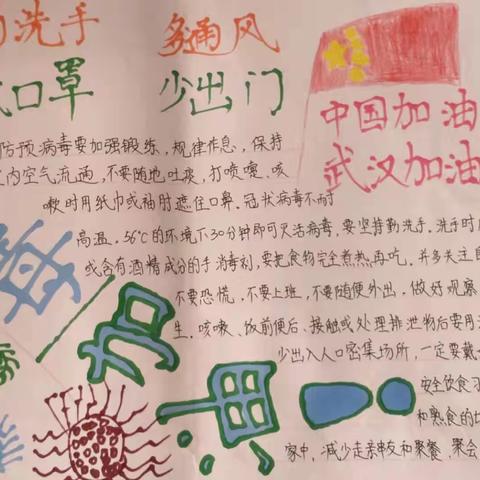 洗手 多通风
口罩 少出门
中国加油
武汉加油
防预病毒要加强锻练，规律作息，保持
内空气流通，不要随地吐痰，打喷嚏，咳
嗽时用纸巾或袖肘遮住口鼻。冠状病毒不耐
高温。56℃的环境下30分钟即可灭活病毒，要坚持勤洗手。洗手时
或含有酒精成分的手消毒剂，要把食物完全煮熟再吃。并多关注
不要恐慌，不要上班，不要随便外出。做好观察
生。咳嗽、饭前便后、接触或处理排泄物后要用
少出入人口密集场所，一定要戴
安全饮食习
和熟食的切
家中，减少走亲串友和聚餐，聚会
加油！